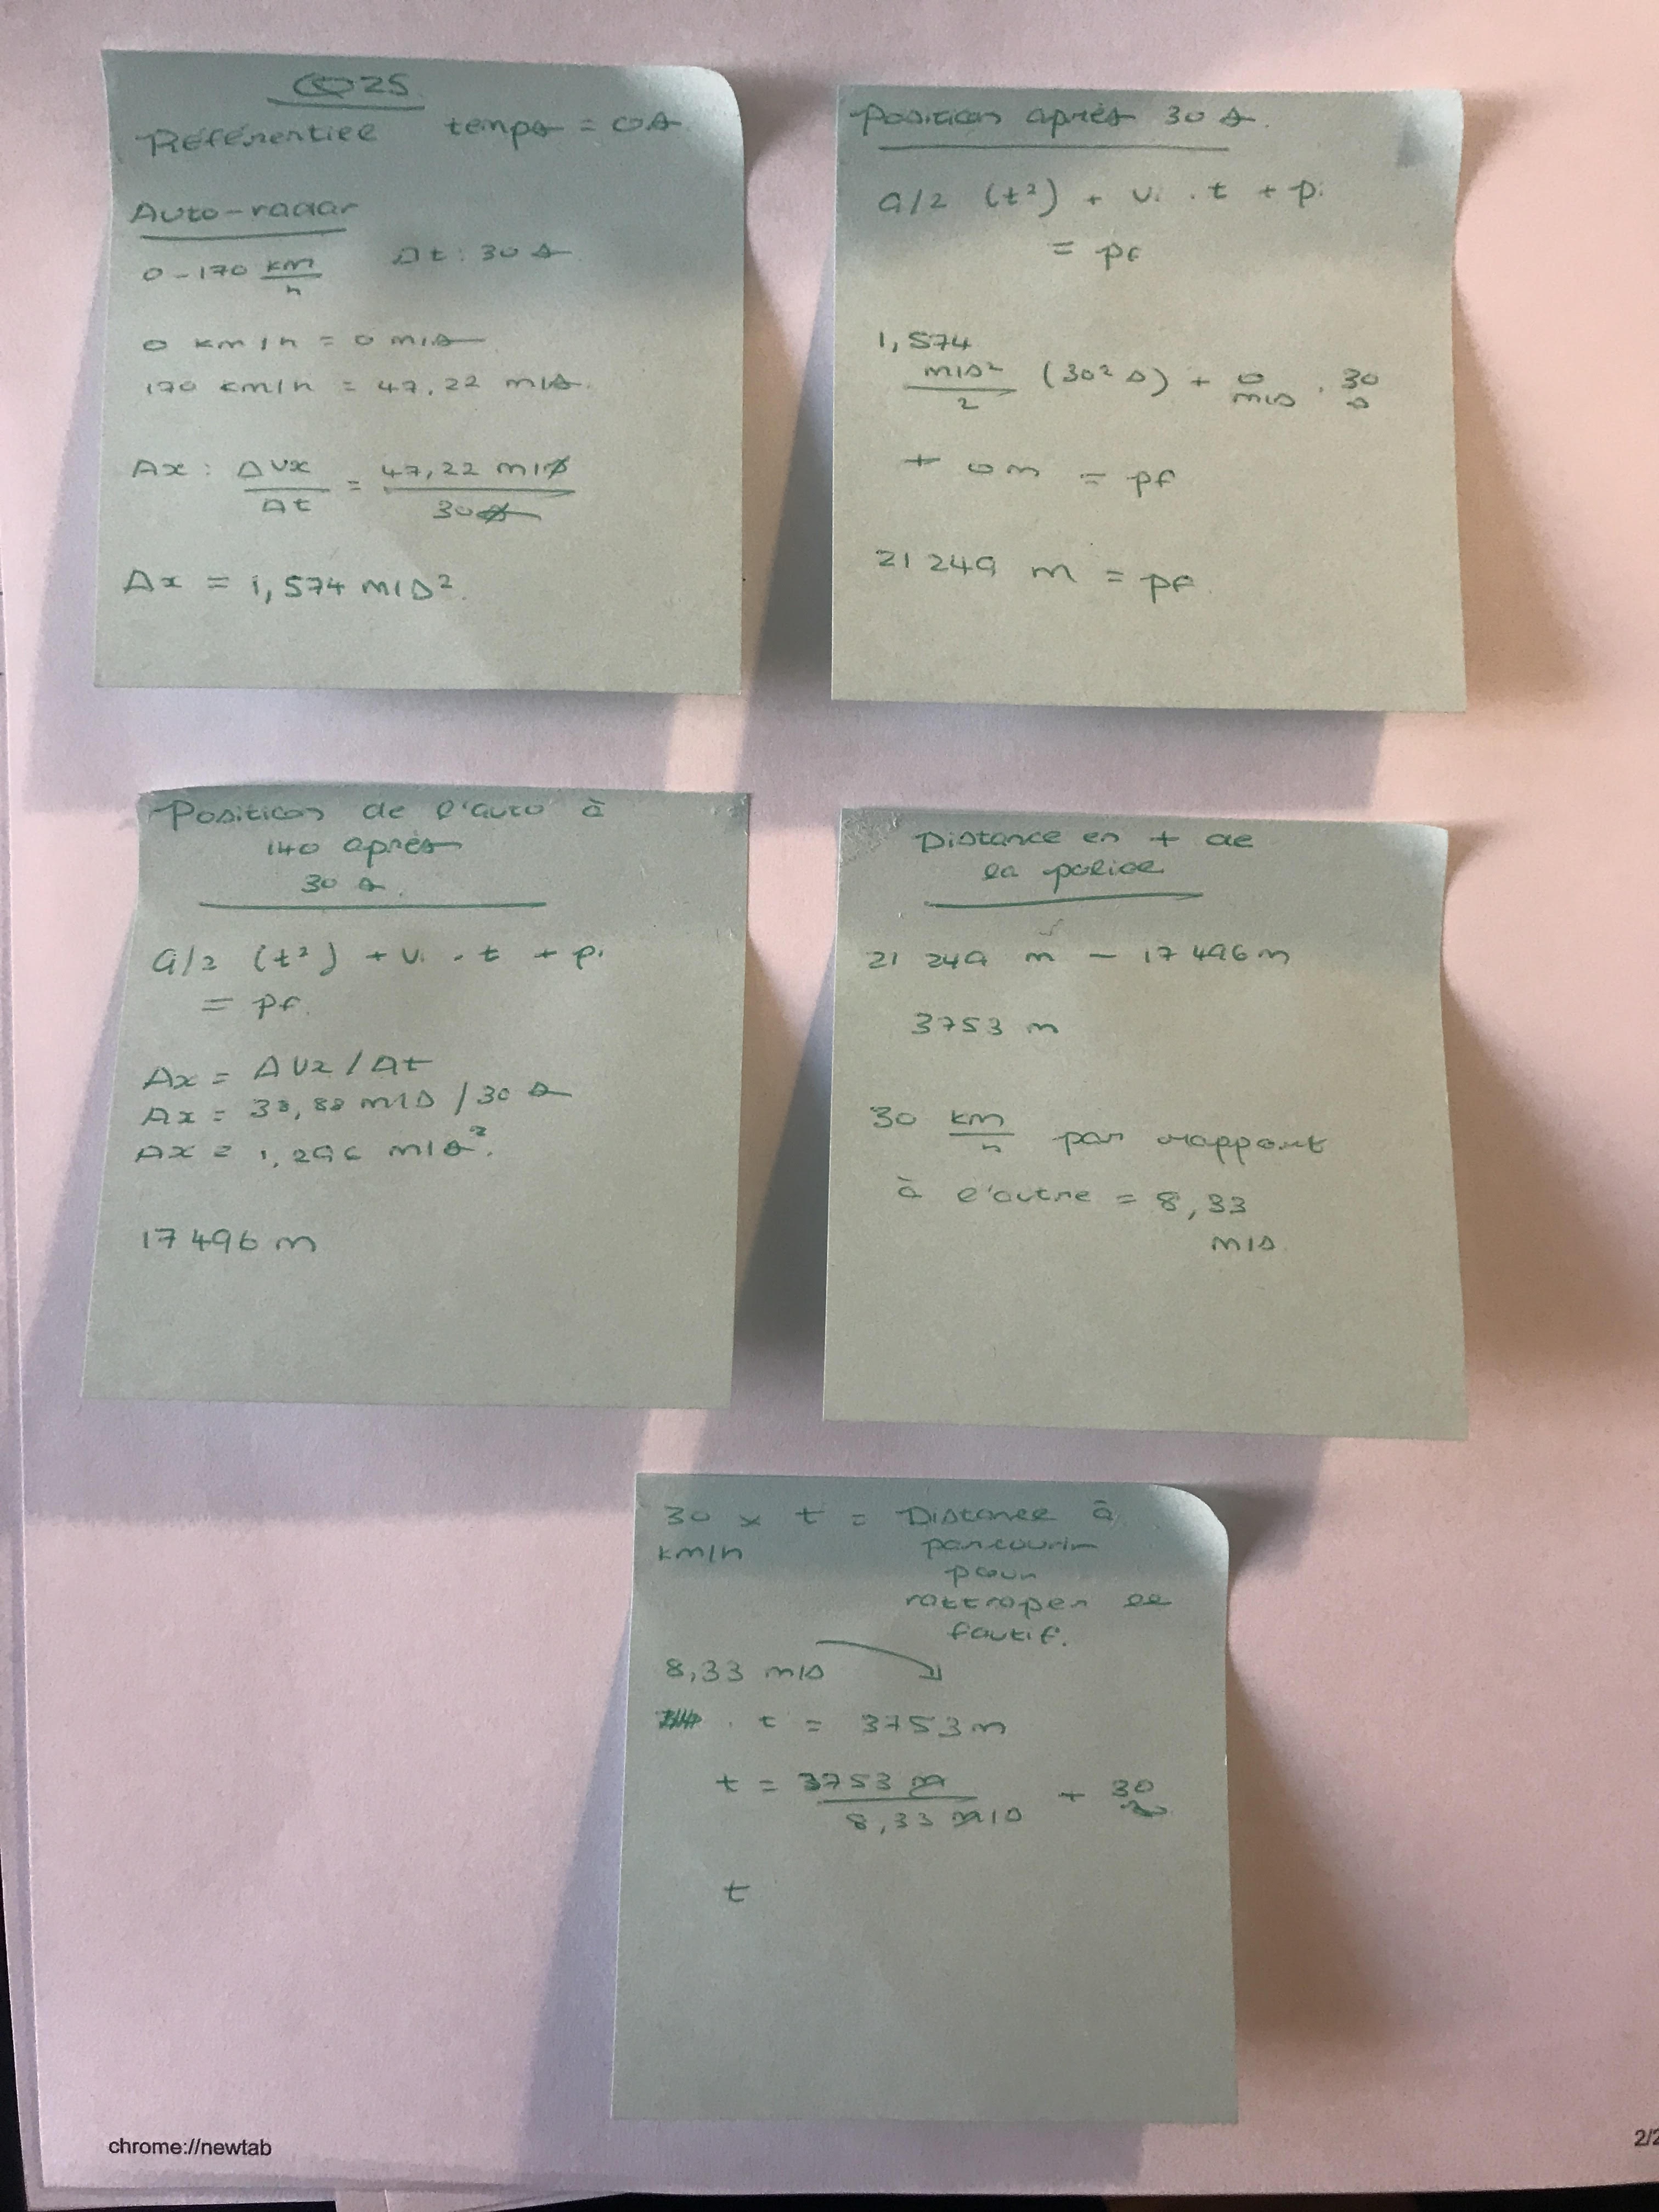 Q25
Référentiel temps = 0s
Auto-radar
0-170 km/h Δt : 30 s
0 km/h = 0 m/s
170 km/h = 47,22 m/s.
Ax : ΔVx/Δt = 47,22 m/s / 30s
Ax = 1,574 m/s².
Position après 30 s.
a/2 (t²) + vi . t + pi
= pf
1,574
m/s²/2 (30² s) + 0 m/s . 30 s
+ 0m = pf
21 249 m = pf.
Position de l'auto à
140 après
30 s.
a/2 (t²) + vi . t + pi
= pf.
Ax = ΔVx / Δt
Ax = 38,88 m/s / 30 s
Ax = 1,296 m/s².
17 496 m
Distance en + de
la police
21 249 m - 17 496 m
3753 m
30 km/h par rapport
à l'autre = 8,33
m/s.
30 x t = Distance à
km/h parcourir
pour
rattraper le
fautif.
8,33 m/s
. t = 3753 m
t = 3753 m / 8,33 m/s + 30
t
chrome://newtab
2/2